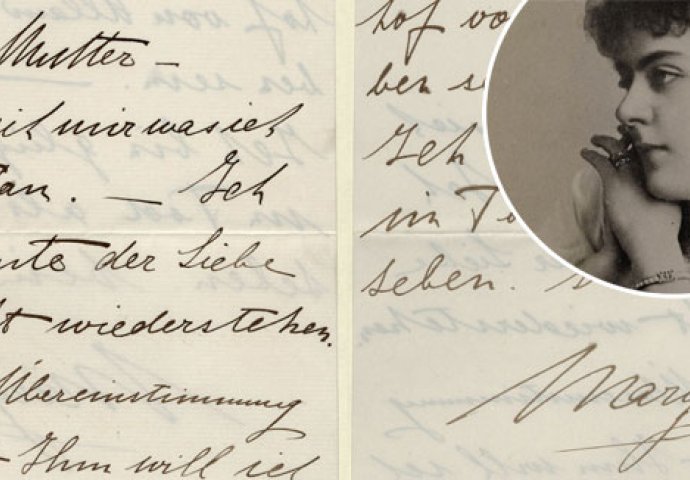 Mutter —
mir was ich
— Ich
der Liebe
wiederstehen.
Übereinstimmung
— Ihm will ich
hof vo
ben s
Ich
im To
leben.
Mary